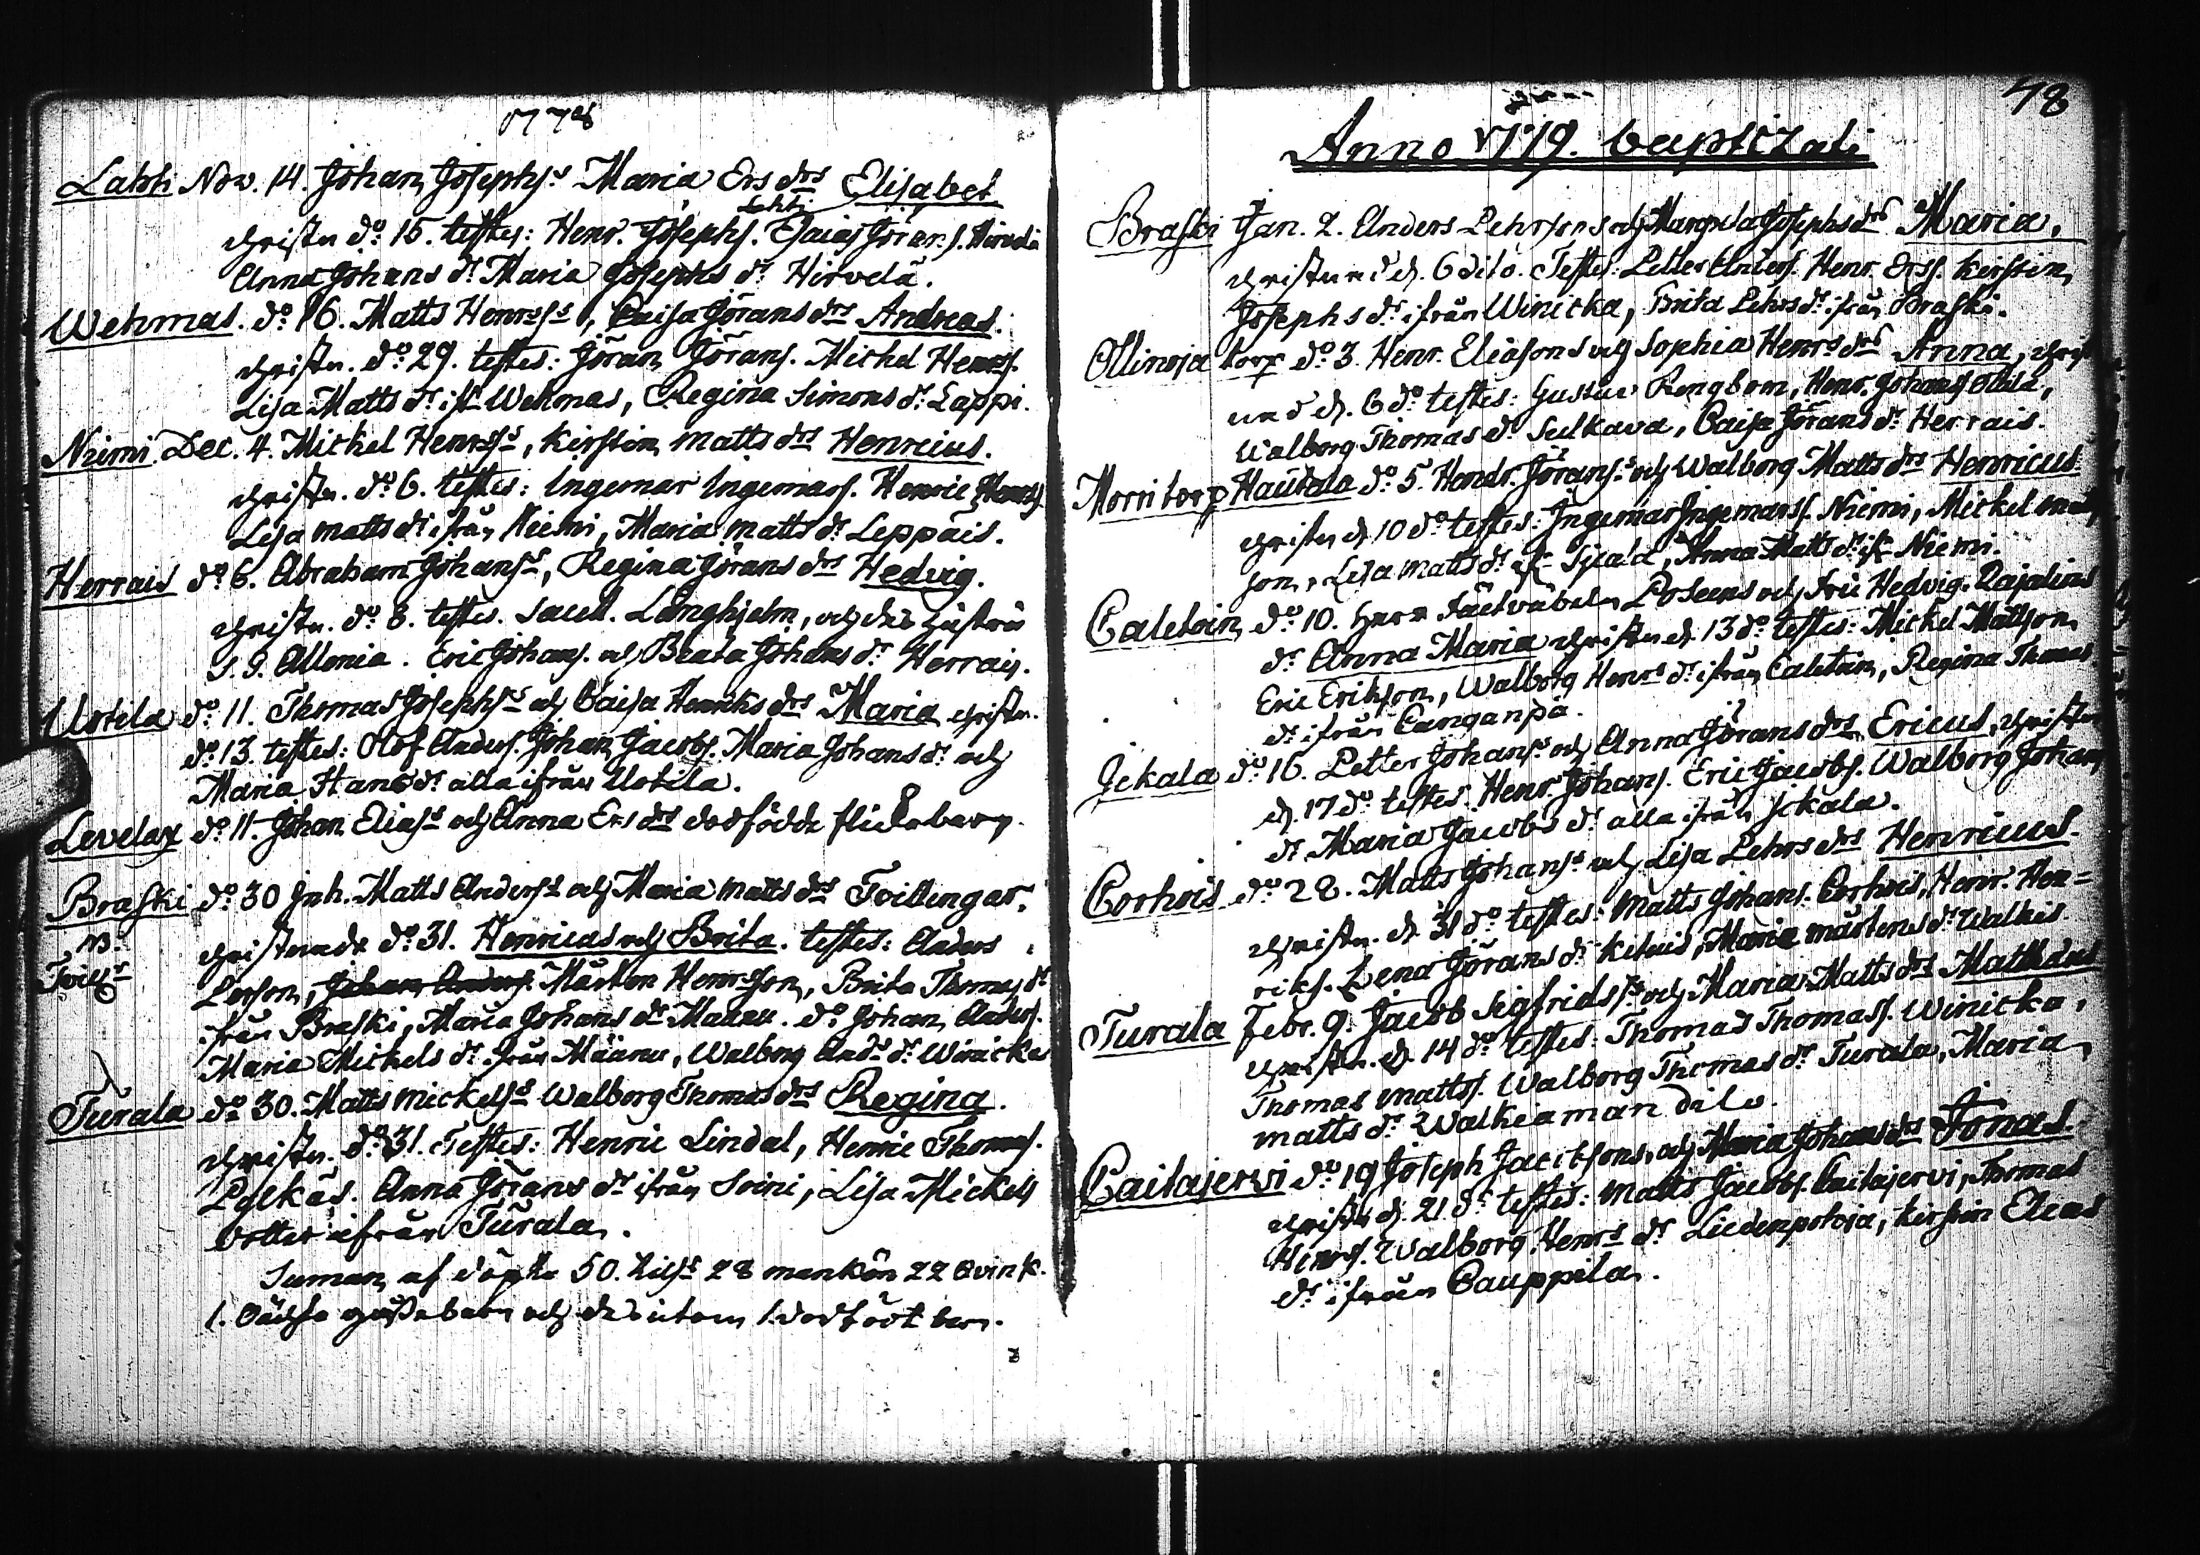 1778
Lahti Nov. 14. Johan Josephs.s Maria Ers drs Elisabet
Lahti
christn do 15. testes: Henr. Josephs. Esaias Görans. Hirvelä
Anna Johans dr Maria Josephs dr Hirvelä.
Wehmas. do 16. Matts Henrss, Caisa Görans drs Andreas.
christn. do 29. testes: Göran Görans. Michel Henrs.
Lisa Matts dr ifr Wehmas, Regina Simons dr Lappi.
Niemi. Dec. 4. Mickel Henrss, Kirstin Matts drs Henricus.
christn. do 6. testes: Ingemar Ingemars. Henric Henrs.
Lisa Matts dr ifrån Niemi, Maria Matts dr Leppäis.
Herrais do 6. Abraham Johanss, Regina Görans drs Hedvig.
christn. do 8. testes. Långhjelm, och des hustru
S. G. Allenia. Eric Johans. och Beata Johans dr Herrais.
Uotila do 11. Thomas Josephss och Caisa Henriks drs Maria christn.
do 13. testes: Olof Anders. Johan Jacobs. Maria Johans dr och
Maria Hans dr alla ifrån Uotila.
Levelax do 11. Johan Eliass och Anna Ers drs dödfödde flickebarn.
Braski do 30 Inh. Matts Anderss och Maria Matts drs Tvillingar,
NB.
christnade do 31. Henricus och Brita. testes: Anders
Larson, Johan Anders. Mårten Henrsson, Brita Thomas dr
ifrån Braski, Maria Johans dr. do Johan Anders.
Maria Mickels dr ifrån, Walborg Ands dr Winicka
Turala do 30. Matts Mickelss Walborg Thomas drs Regina.
christn. do 31. Testes: Henric Lindal, Henric Thomas.
Pylkäs. Anna Görans dr ifrån Soini, Lisa Mickels
dotter ifrån Turala.
Suman af döpte 50. 28 mankön 22 qvink.
1. oächta gåsse barn och des utom 1. dödfödt barn.
48
Anno 1779. baptizati
Braski Jan. 2. Anders Lehrsons och Margreta Josephs drs Maria,
christnad d. 6 dito. Testes: Petter Anders. Henr. Erss. Kirstin
Josephs dr ifrån Winicka, Brita Lehrs dr ifrån Braski.
Ollinoja torp do 3. Henr. Eliasons och Sophia Henrs drs Anna, christ
nad d. 6 do testes: Gustav Rengbom, Henr. Johans.,
Walborg Thomas dr Sulkava, Caisa Görans dr Herrais.
Morri torp Hautala do 5. Hendr. Göranss och Walborg Matts drs Henricus
christn d 10 do testes: Ingemar Ingemarss. Niemi, Mickel Matts
son, Lisa Matts dr ifr, Anna Matts dr ifr Niemi.
Caletoin do 10. Herr Fältväbeln Poleens och fru Hedvig Cajalins
dr Anna Maria christn d 13 do testes: Mickel Mattson
Eric Erikson, Walborg Henrs dr ifrån Caletoin, Regina Thomas
dr ifrån Canganpä.
Jckala do 16. Petter Johanss och Anna Görans drs Ericus, christn
d. 17 do testes. Henr. Johans. Eric Jacobs. Walborg Johans
dr Maria Jacobs dr alla ifrån Jckala.
Corhois do 28. Matts Johanss och Lisa Lehrs drs Henricus
christn. d 31 do testes: Matts Johans. Corhois, Henr. Hen-
riks. Lena Görans dr Kitois, Maria Mårtens dr Walkis
Turala Febr. 9. Jacob Sigfridss och Maria Matts drs Mathæus
christn. d 14 do testes: Thomas Thomass. Winicka,
Thomas Mattss. Walborg Thomas dr Turala, Maria
Matts dr Walkiaman dito.
Caitajervi do 19 Joseph Jacobsons och Maria Johans drs Jonas
christn d. 21 do testes: Matts Jacobs. Caitajervi, Thomas
Henrs. Walborg Henrs dr Liedenpohja, Kirstin Elias
dr ifrån Cauppila.